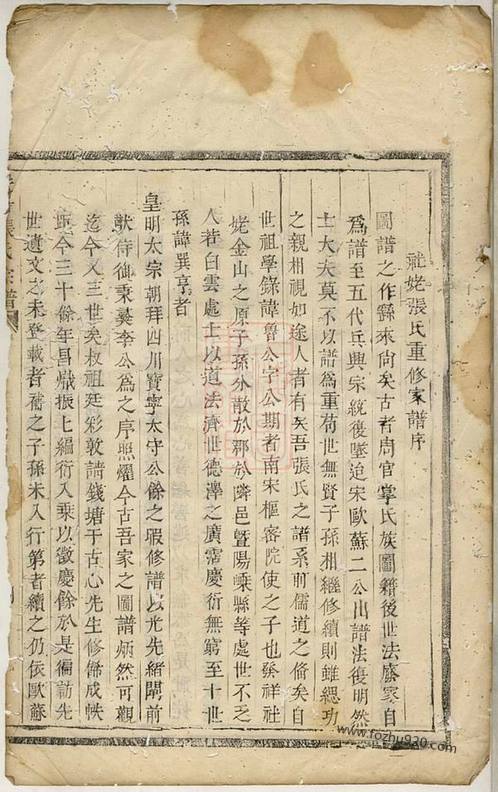 社姥張氏重修家譜序
圖譜之作繇來尚矣古者周官掌氏族圖籍後世法廢家自
爲譜至五代兵興宋統後墜迨宋歐蘇二公出譜法復明然
士大夫莫不以譜爲重苟世無賢子孫相繼修續則雖緦功
之親相視如途人者有矣吾張氏之譜系前儒道之偹矣自
世祖學錄諱魯公字公期者南宋樞宻院使之子也發祥社
姥金山之原子孫外散於那於隣邑曁陽嵊縣等處世不乏
人若白雲處士以道法濟世德澤之廣霈慶衍無窮至十世
孫諱巽亨者
皇明太宗朝拜四川寳寧太守公餘之暇修譜以光先緒閣前
獻侍御秉彛李公爲之序照燿今古吾家之圖譜炳然可觀
迄今又三世矣叔祖廷彩敦請錢塘于古心先生修俻成帙
距今三十餘年昌熾振上綿衍人乗以徵慶餘於是徧訪先
世遺文之未登載者補之子孫未入行第者續之仍依歐蘇
張氏宗譜
www.fozhu920.com